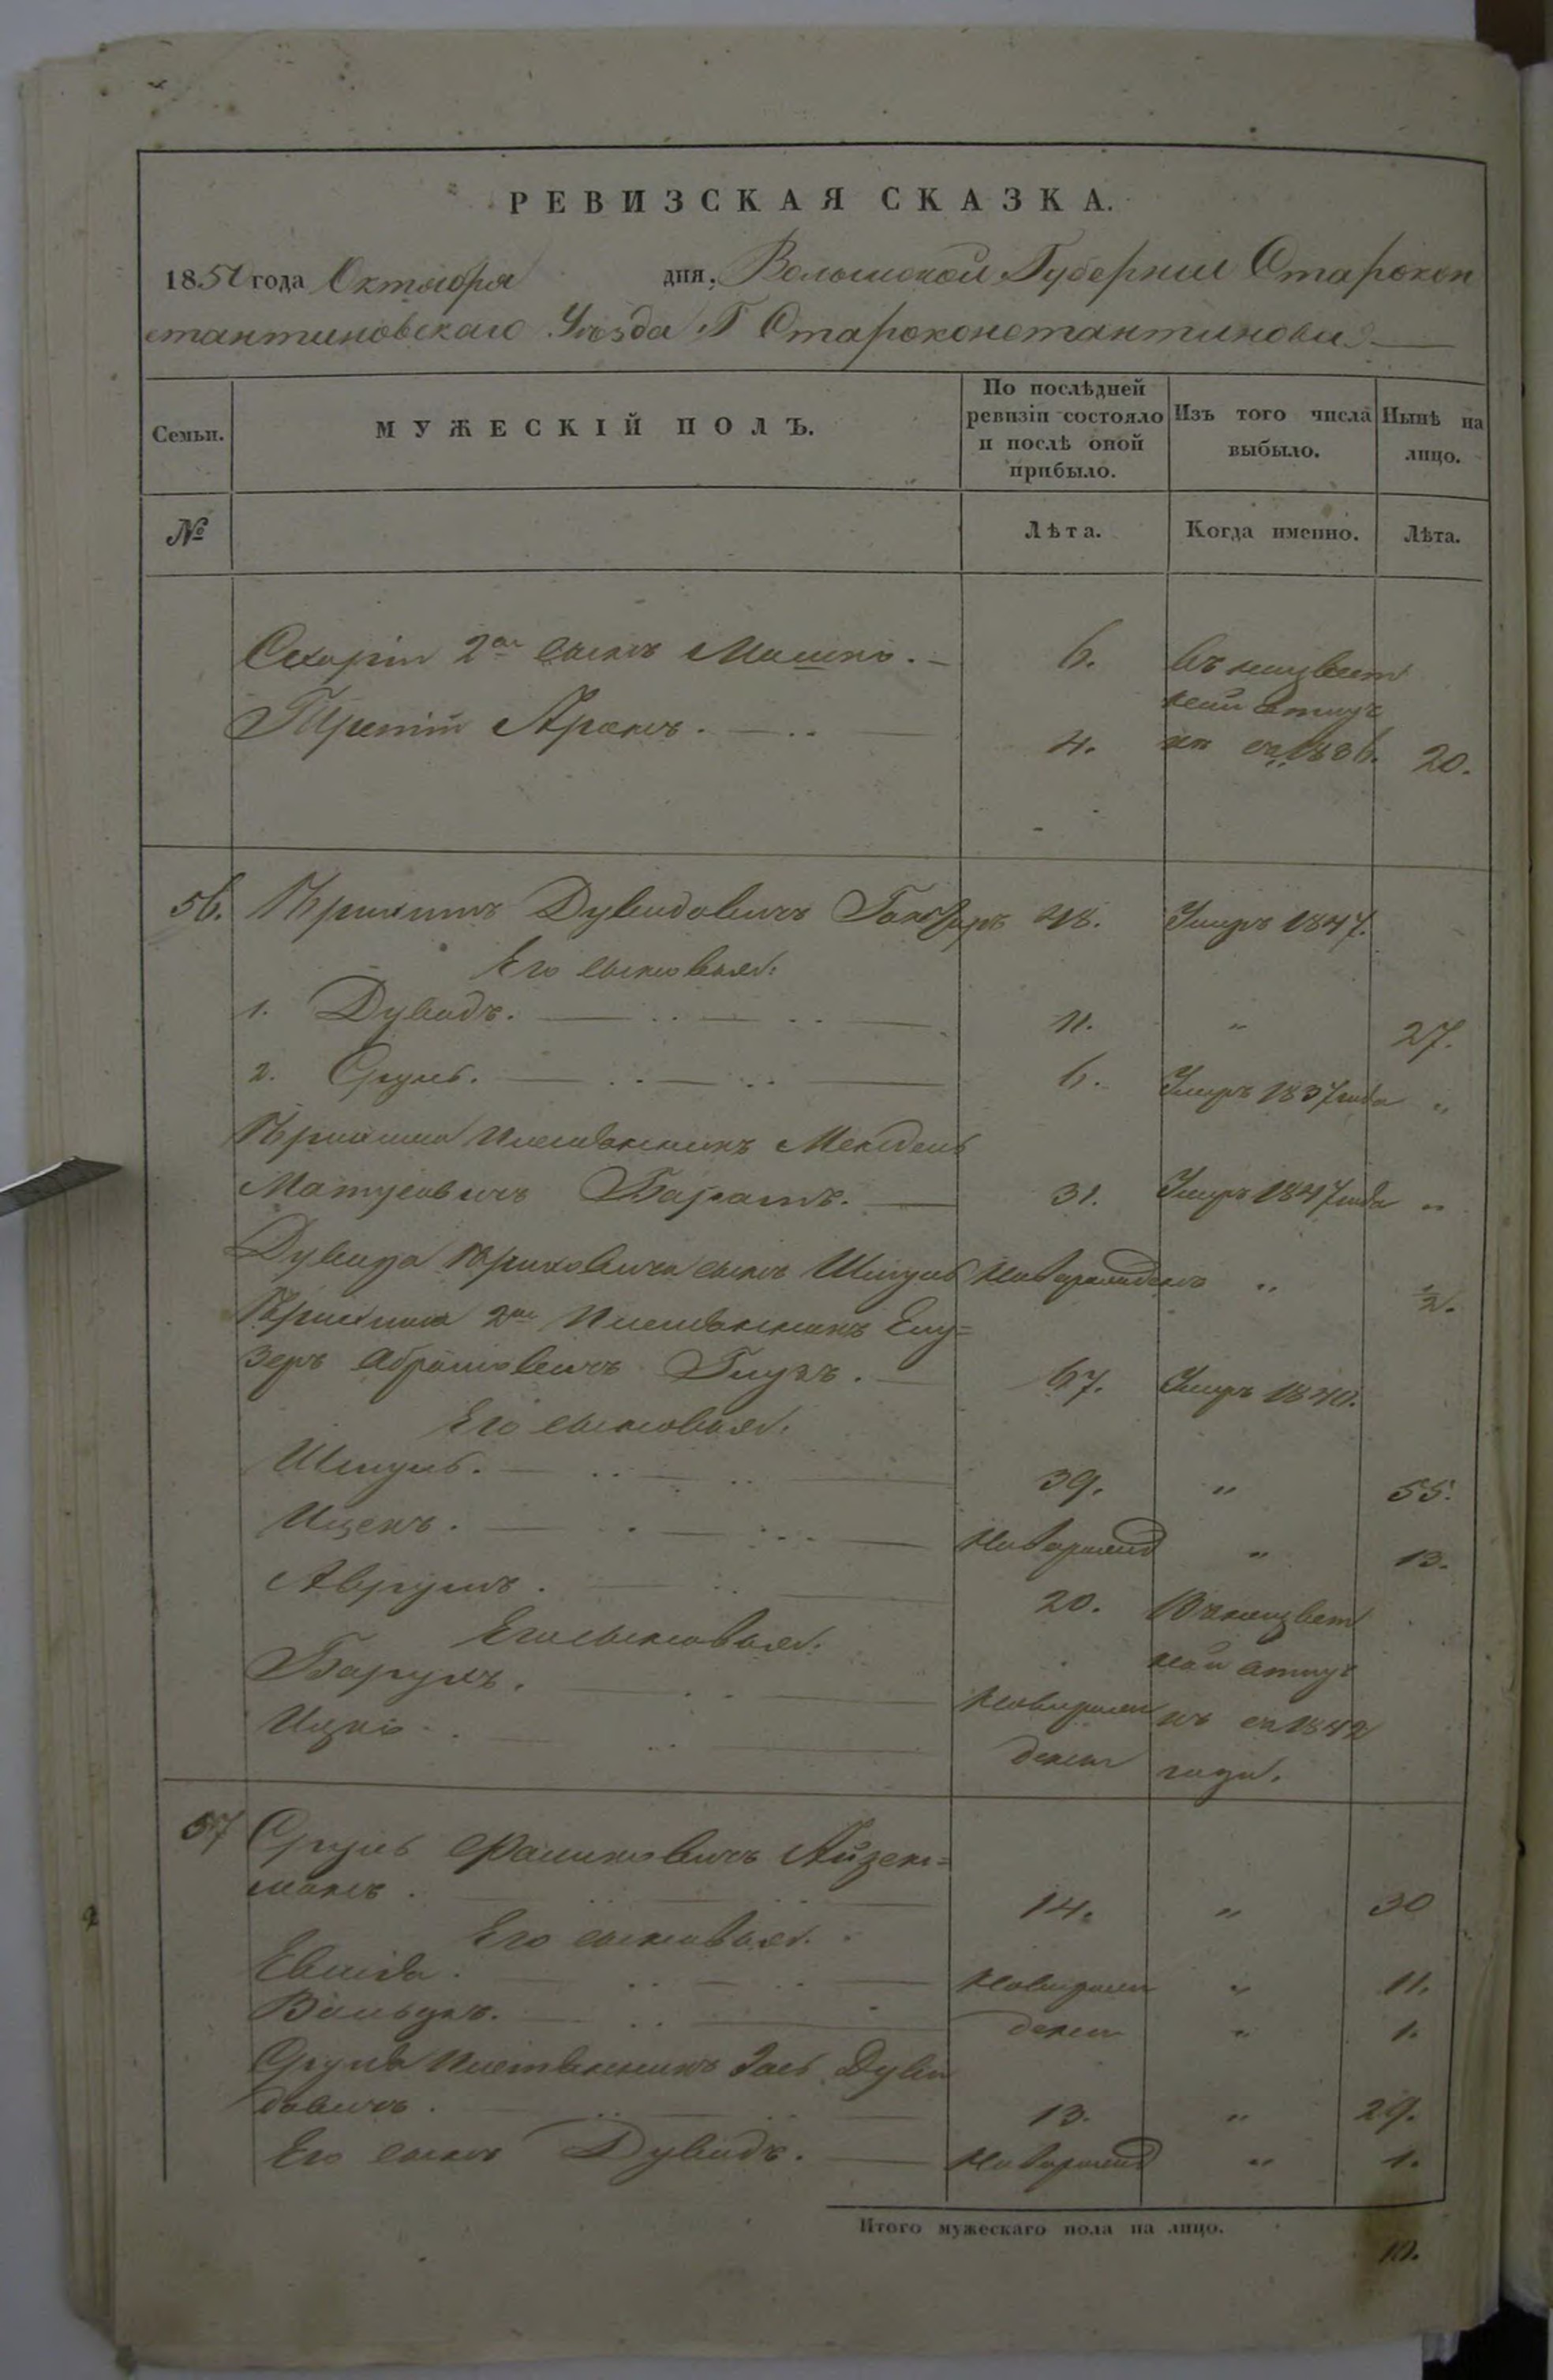 РЕВИЗСКАЯ СКАЗКА.
1850 года Октября дня, Волынской Губернии Старокон
стантиновскаго Уѣзда Г Староконстантинова
Семьи.
МУЖЕСКІЙ ПОЛЪ.
По послѣдней ревизіи состояло и послѣ оной прибыло.
Изъ того числа выбыло.
Нынѣ на лицо.
№
Лѣта.
Когда именно.
Лѣта.
2й сынъ Мошко. 6. Въ неизвест
ной отлуч
Третій Аронъ. 4. кѣ съ 1836. 20.
56. Дувидовичъ 48. Умеръ 1847.
Его сыновья:
1. Дувидъ. 11. " 27.
2. Сруль. 6. Умеръ 1837 года "
племянникъ Мендель
Матусовичъ 31. Умеръ 1847 года "
Дувида сынъ Шмуль новорожденъ " ½.
2й Племянникъ Елу=
зеръ Абрамовичъ 67. Умеръ 1840.
Его сыновья:
Шмуль. 39. " 55.
Ицекъ. новорожд " 13.
Аврумъ. 20. В неизвест
Его сыновья. ной отлуч
Барухъ. новорожд кѣ съ 1842
Ицко. денъ года.
57 Сруль Айзен=
манъ. 14. " 30
Его сыновья.
новорож " 11.
Вольфъ. дены " 1.
Сруля Племянникъ Дуви
довичъ. 13. " 29.
Его сынъ Дувидъ. Новорожд " 1.
Итого мужескаго пола на лицо.
10.